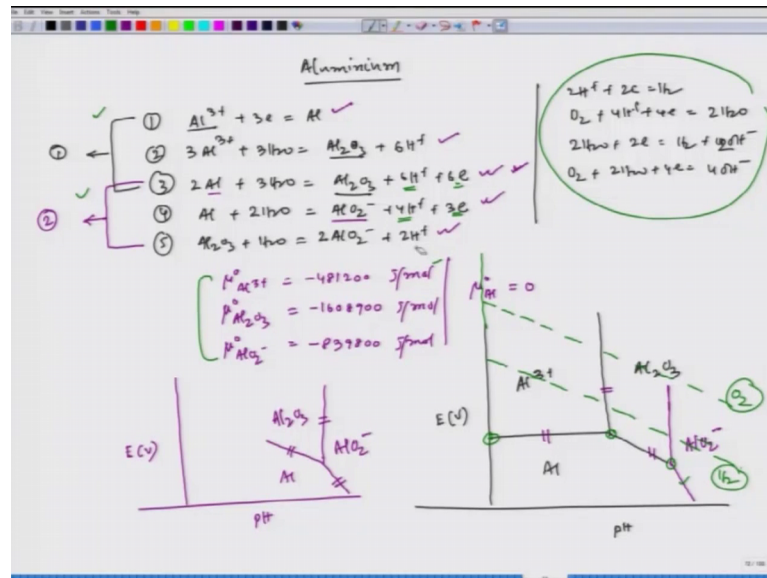 Edit View Insert Actions Tools Help
Aluminium
① Al³⁺ + 3e = Al
② 3Al³⁺ + 3H₂O = Al₂O₃ + 6H⁺
③ 2Al + 3H₂O = Al₂O₃ + 6H⁺ + 6e
④ Al + 2H₂O = AlO₂⁻ + 4H⁺ + 3e
⑤ Al₂O₃ + H₂O = 2AlO₂⁻ + 2H⁺
①
②
2H⁺ + 2e = H₂
O₂ + 4H⁺ + 4e = 2H₂O
2H₂O + 2e = H₂ + 2OH⁻
O₂ + 2H₂O + 4e = 4OH⁻
μ°Al³⁺ = -481200 J/mol
μ°Al₂O₃ = -1608900 J/mol
μ°AlO₂⁻ = -839800 J/mol
μ°Al = 0
E(V)
Al₂O₃
AlO₂⁻
Al
pH
E(V)
Al³⁺
Al₂O₃
O₂
AlO₂⁻
H₂
Al
pH